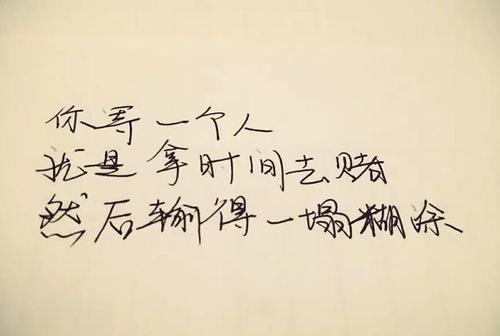 你等一个人
就是拿时间去赌
然后输得一塌糊涂